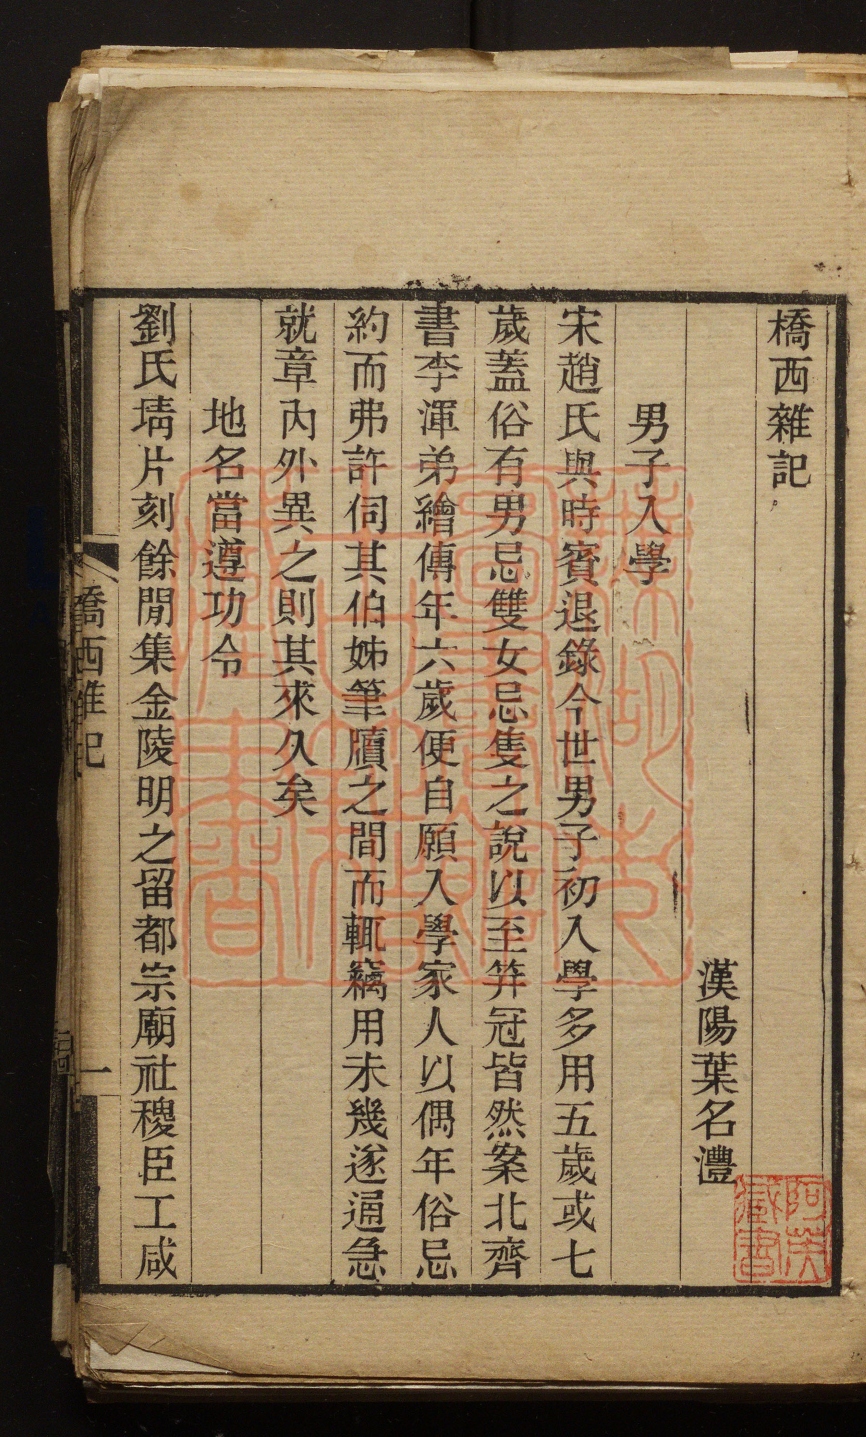 橋西雜記
漢陽葉名灃
男子入學
宋趙氏與時賓退錄今世男子初入學多用五歲或七
歲蓋俗有男忌雙女忌隻之說以至笄冠皆然案北齊
書李渾弟繪傳年六歲便自願入學家人以偶年俗忌
約而弗許伺其伯姊筆牘之間而輒竊用未幾遂通急
就章內外異之則其來久矣
地名當遵功令
劉氏堶片刻餘閒集金陵明之留都宗廟社稷臣工咸
橋西雜記
一